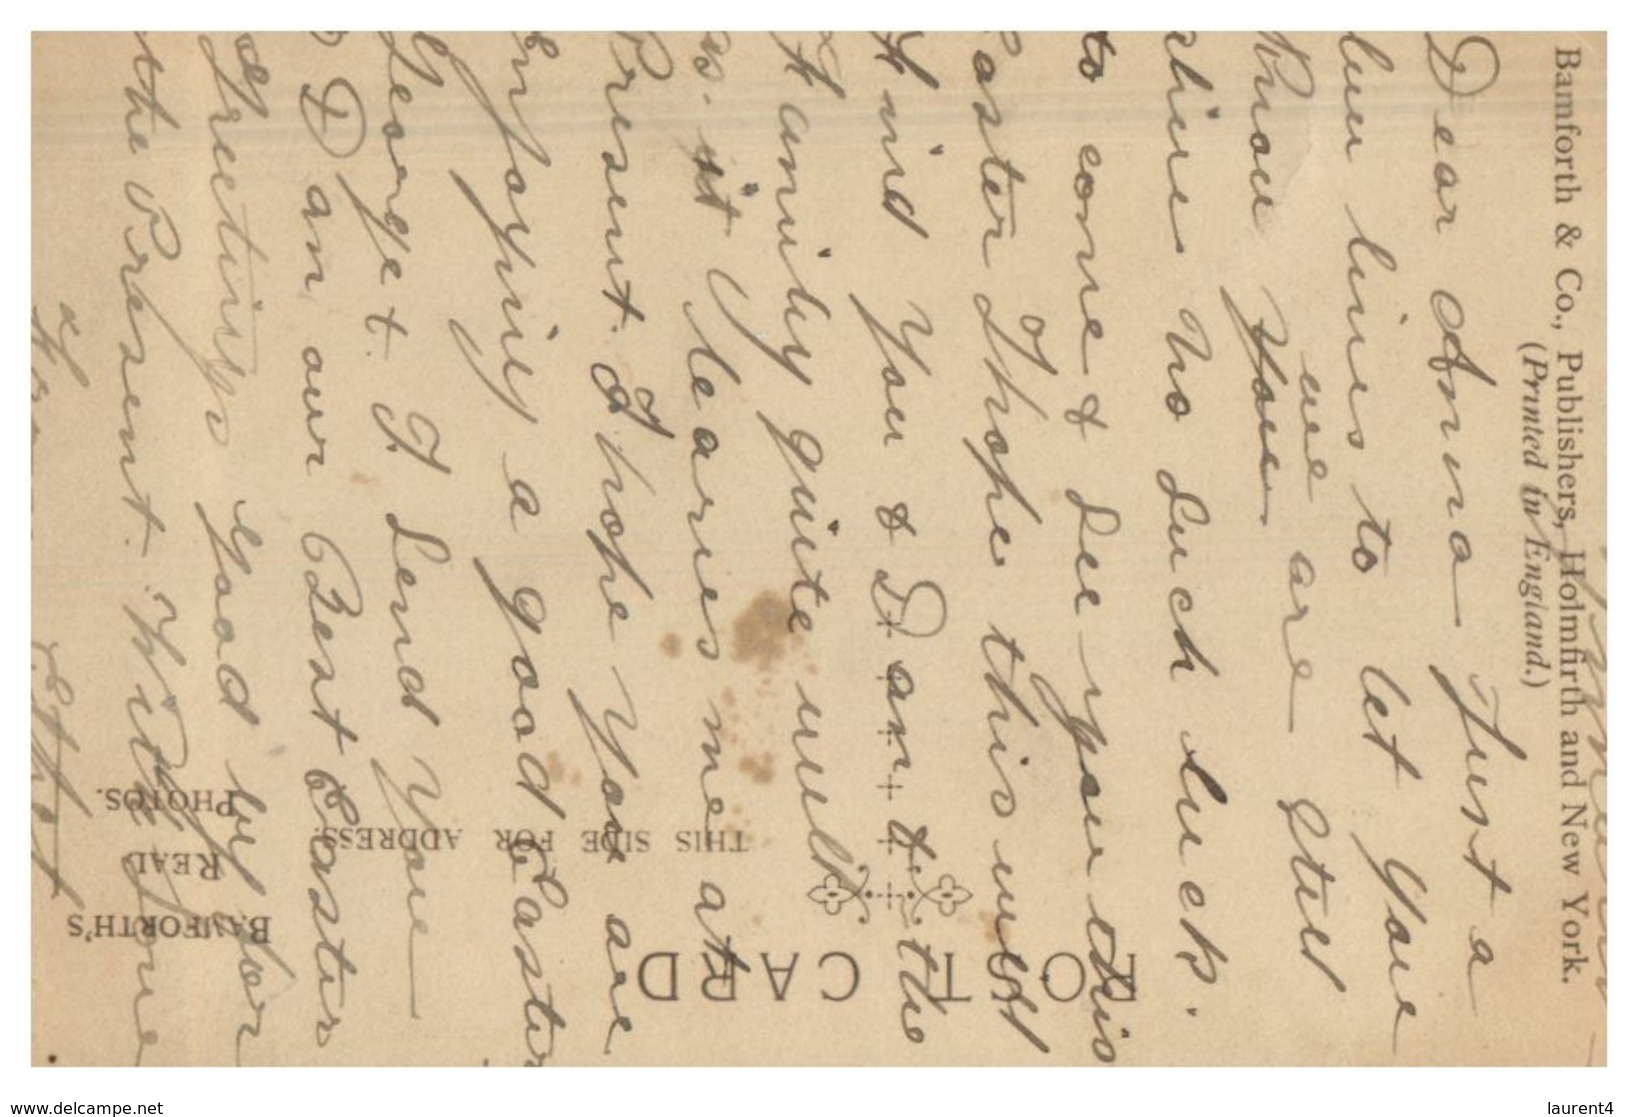 Bamforth & Co., Publishers, Holmfirth and New York.
(Printed in England.)
POST CARD
THIS SIDE FOR ADDRESS.
BAMFORTH'S
REAL
PHOTOS.
Dear Anna Just a
few lines to let you
we are
know you still
alive no such luck.
to come & see you this
Easter I hope this will
find you & Dan & the
Family quite well
as it leaves me at
Present. I hope you are
Enjoying a good Easter
George t. I Send you
& Dan our Best Easter
Greetings good by for
the Present. With Love
www.delcampe.net
laurent4